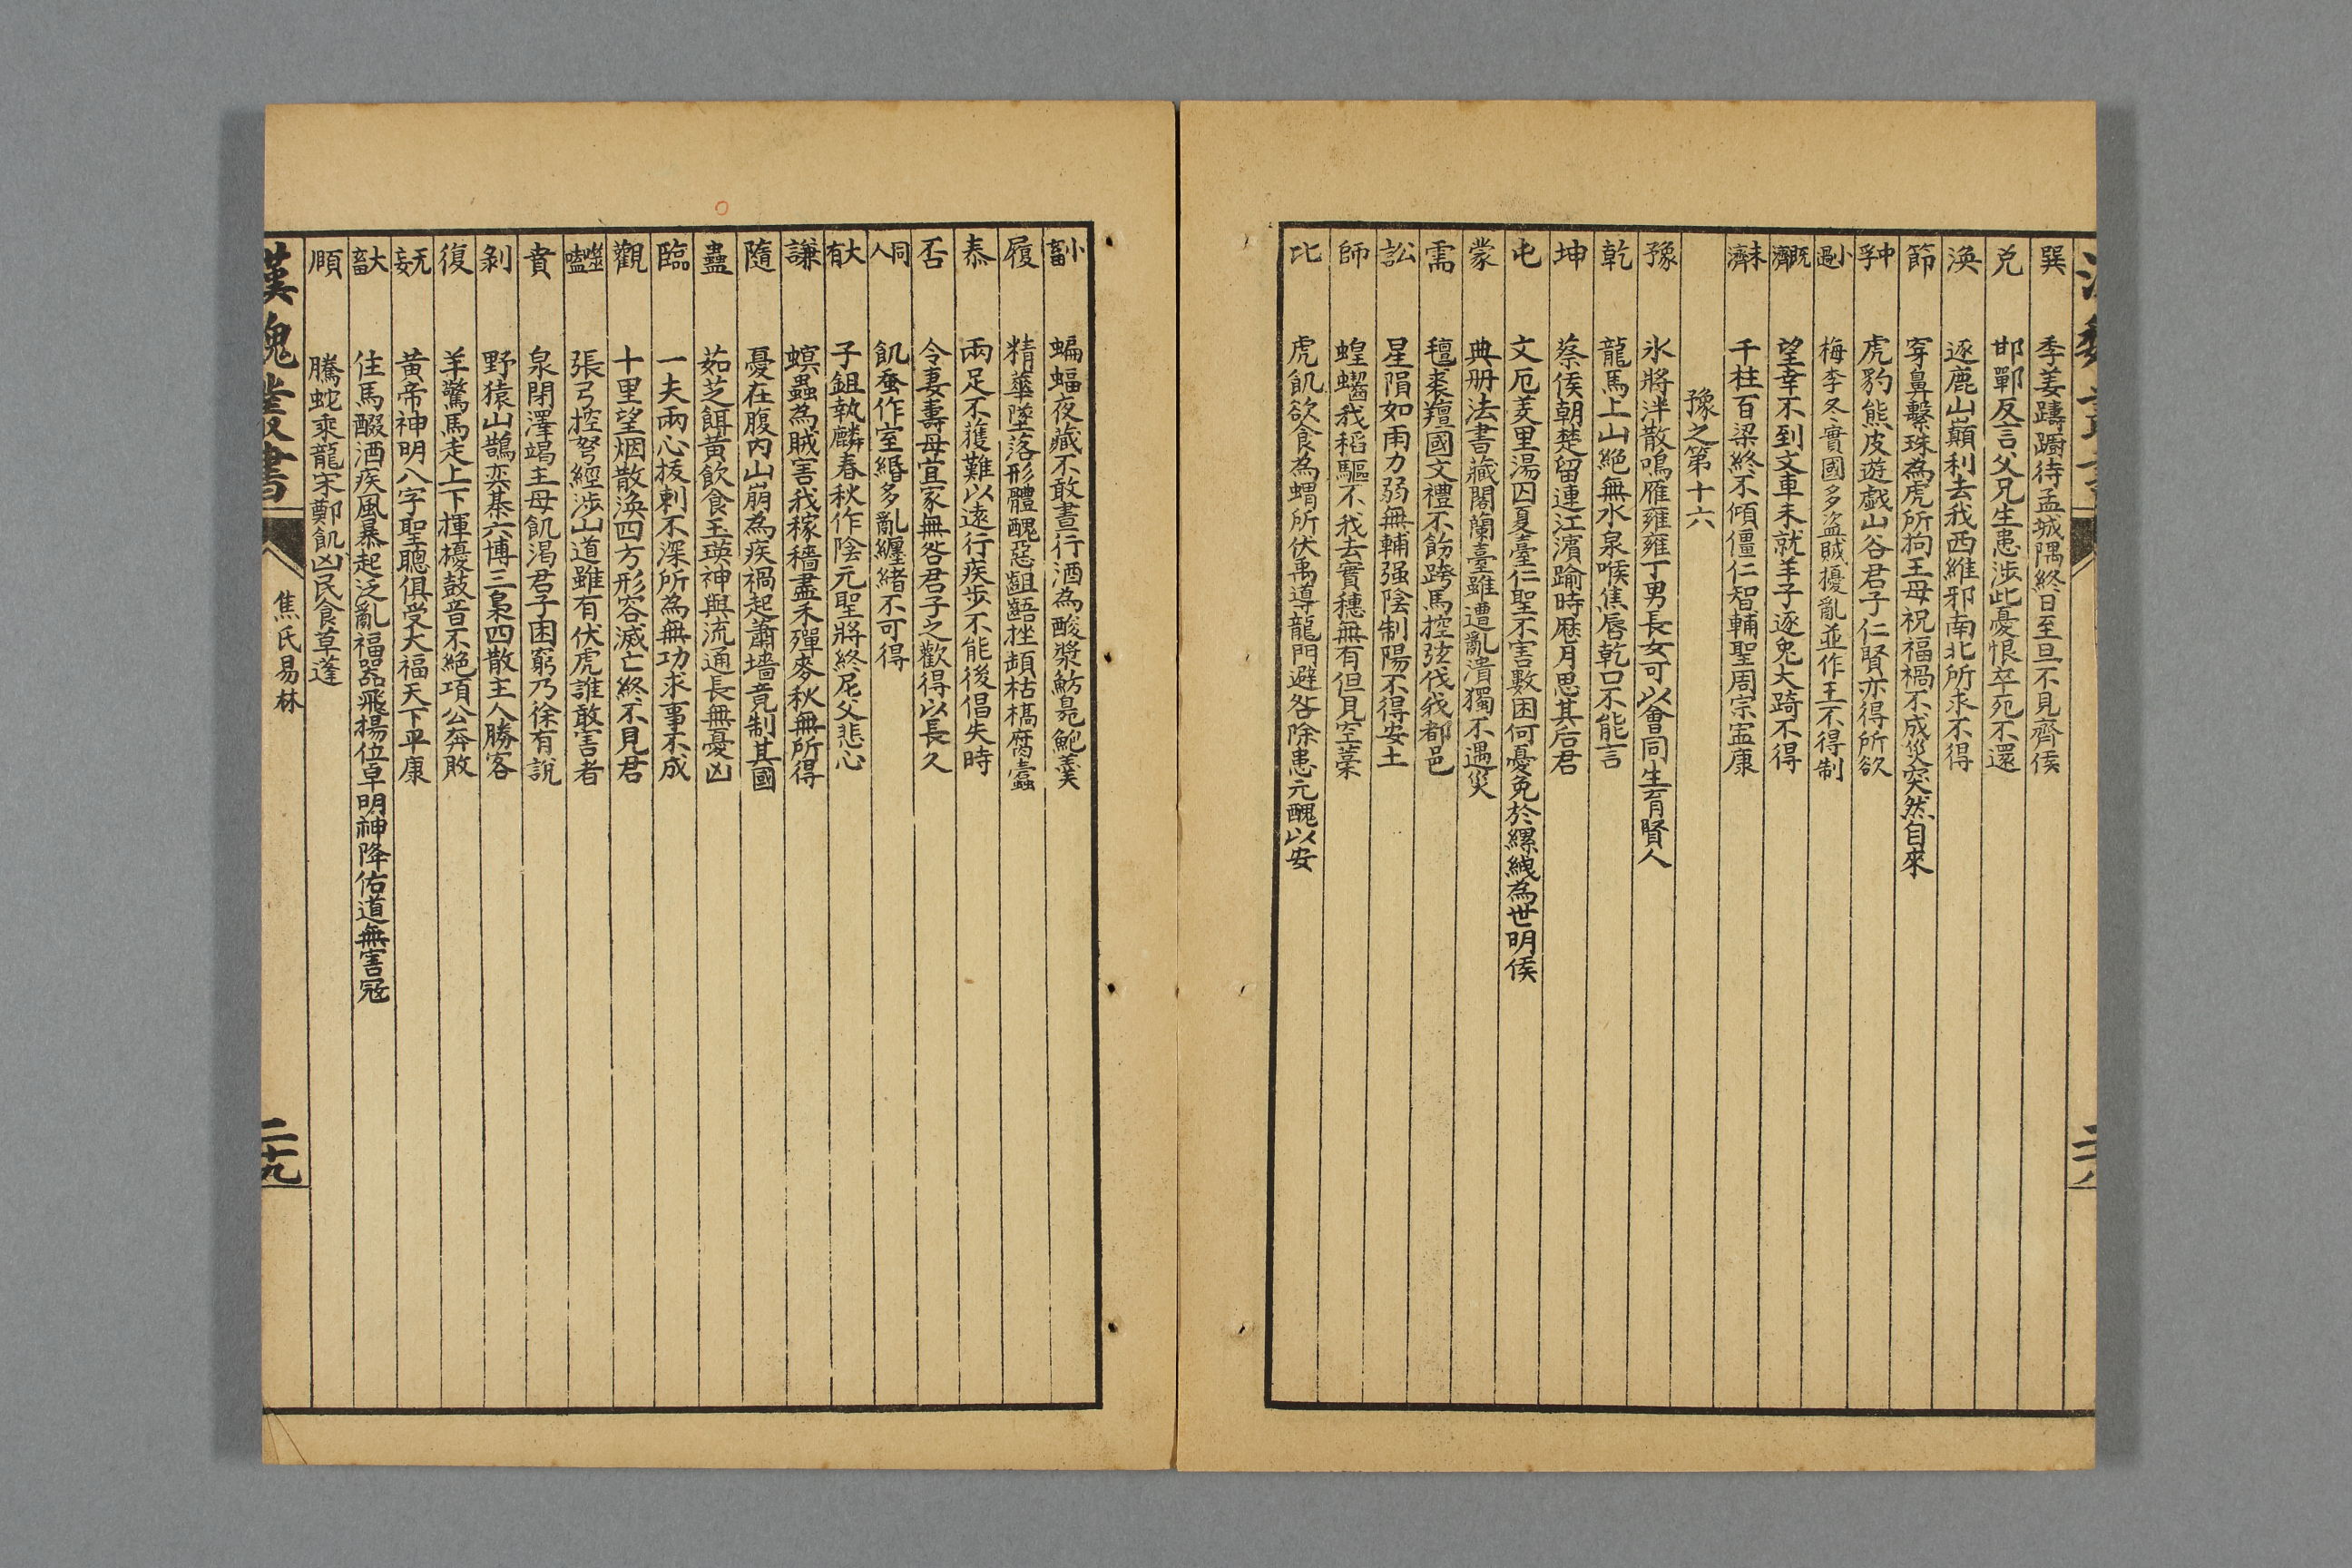 巽　季姜躊躕待孟城隅終日至旦不見齊侯
兌　邯鄲反言父兄生患涉此憂恨卒死不還
渙　逐鹿山巔利去我西維邪南北所求不得
節　穿鼻繫株為虎所拘王母祝福禍不成災突然自來
中孚　虎豹熊皮遊戲山谷君子仁賢亦得所欲
小過　梅李冬實國多盜賊擾亂並作王不得制
既濟　望幸不到文車未就羊子逐兔大踦不得
未濟　千柱百梁終不傾僵仁智輔聖周宗寍康
豫之第十六
豫　氷將泮散鳴雁雍雍丁男長女可以會同生育賢人
乾　龍馬上山絕無水泉喉焦唇乾口不能言
坤　蔡侯朝楚留連江濱踰時歷月思其后君
屯　文厄羑里湯囚夏臺仁聖不害數困何憂免於縲紲為世明侯
蒙　典册法書藏閣蘭臺雖遭亂潰獨不遇災
需　氊裘羶國文禮不飭跨馬控弦伐我都邑
訟　星隕如雨力弱無輔强陰制陽不得安土
師　蝗螨我稻驅不我去實穗無有但見空藁
比　虎飢欲食為蝟所伏禹導龍門避咎除患元醜以安
小畜　蝙蝠夜藏不敢晝行酒為酸漿魴鳧鮑羹
履　精華墜落形體醜惡齟齬挫頓枯槁腐蠹
泰　兩足不獲難以遠行疾步不能後倡失時
否　令妻壽母宜家無咎君子之歡得以長久
同人　飢蚕作室緡多亂纏緒不可得
大有　子鉏執麟春秋作陰元聖將終尼父悲心
謙　螟蟲為賊害我稼穡盡禾殫麥秋無所得
隨　憂在腹内山崩為疾禍起蕭墻竟制其國
蠱　茹芝餌黃飲食玉瑛神與流通長無憂凶
臨　一夫兩心拔刺不深所為無功求事不成
觀　十里望烟散渙四方形容滅亡終不見君
噬嗑　張弓控弩經涉山道雖有伏虎誰敢害者
賁　泉閉澤竭主母飢渴君子困窮乃徐有說
剝　野猿山鵲奕棊六博三梟四散主人勝客
復　羊驚馬走上下揮擾鼓音不絕項公奔敗
无妄　黃帝神明八字聖聰俱受大福天下平康
大畜　住馬醊酒疾風暴起泛亂福器飛揚位草明神降佑道無害冦
頤　騰蛇乘龍宋鄭飢凶民食草蓬
漢魏叢書　焦氏易林　二十九